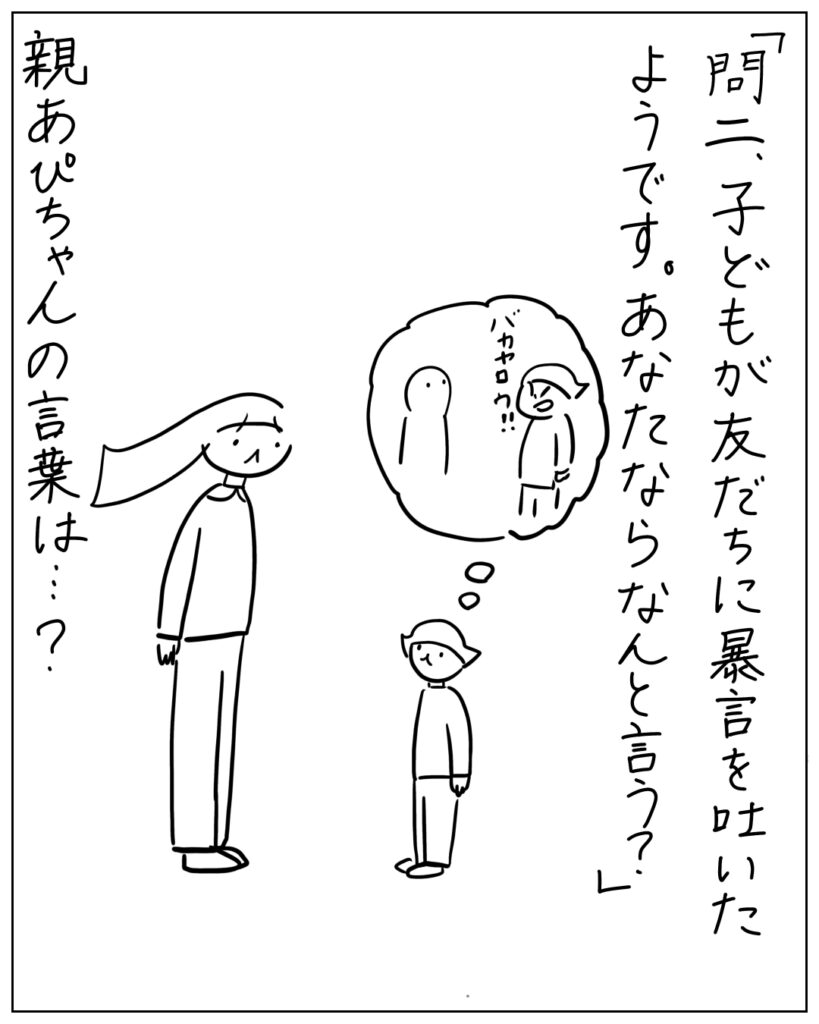 「問二、子どもが友だちに暴言を吐いた
ようです。あなたならなんと言う?」
バカヤロウ!!
親あぴちゃんの言葉は…?